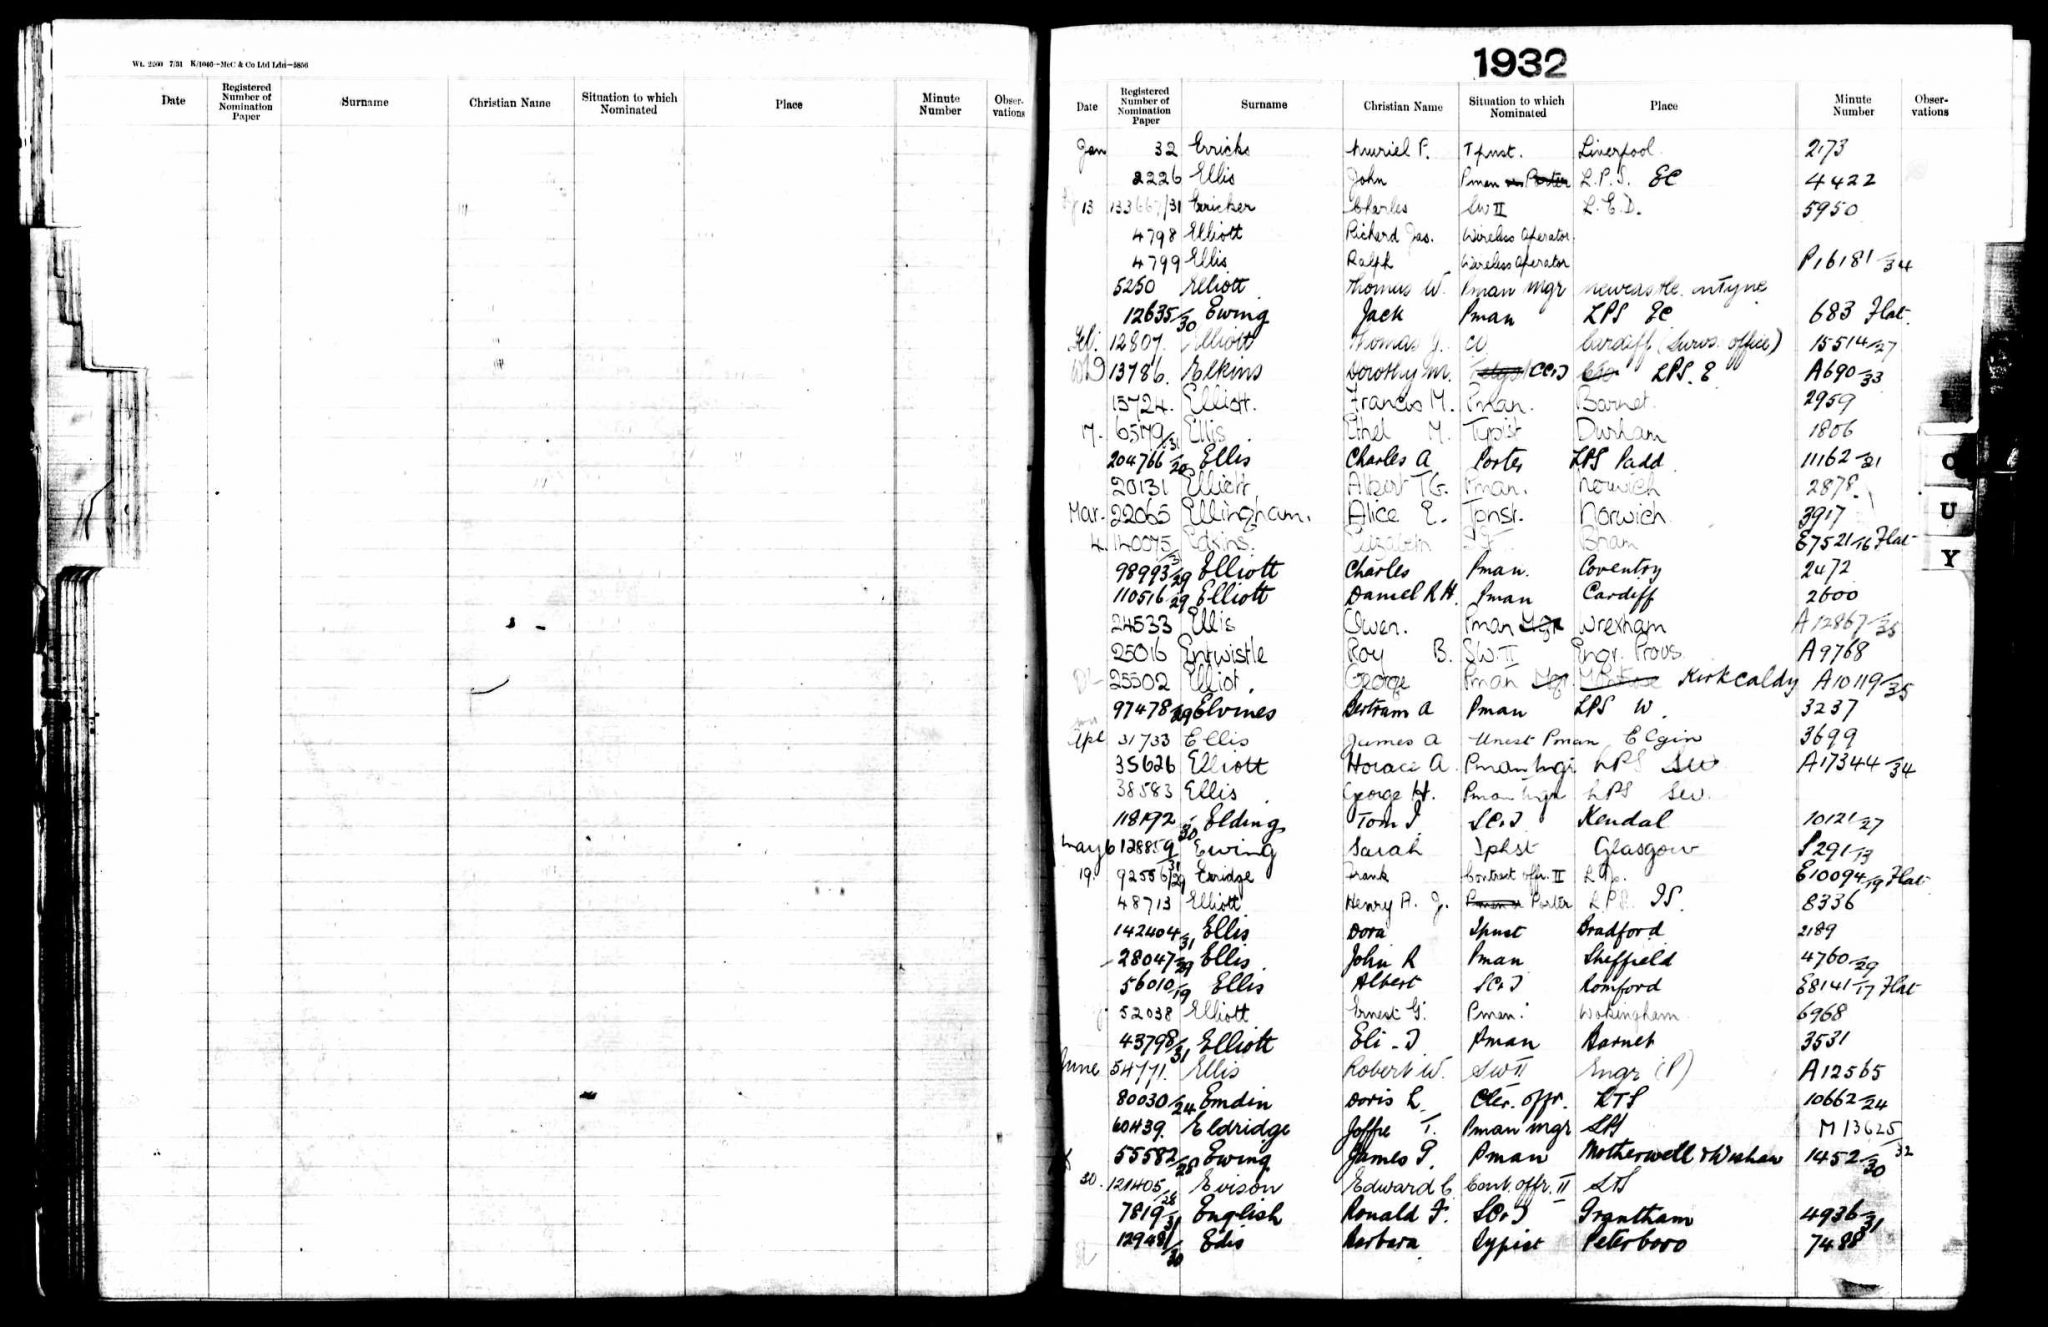 Wt. 2560 7/31 K/1046—McC & Co Ltd Ldn—5856
Date Registered Number of Nomination Paper Surname Christian Name Situation to which Nominated Place Minute Number Obser- vations
1932
Date Registered Number of Nomination Paper Surname Christian Name Situation to which Nominated Place Minute Number Obser- vations
Jan 32 Ericks Muriel F. Tpnst. Liverpool 2173
2226 Ellis John Pman L.P.S. EC 4422
13 133667/31 Erricker Charles SW II L.E.D. 5950
4798 Elliott Richard Jas. Wireless Operator
4799 Ellis Ralph Wireless Operator P16181/34
5250 Elliott Thomas W. Pman Mgr Newcastle on Tyne
12635/30 Ewing Jack Pman LPS EC 683 Flat.
Feb. 12807. Elliott Thomas J. CO Cardiff (Survs. office) 15514/27
13786. Elkins Dorothy M. LPS. E A690/33
15724. Elliott. Francis M. Pman. Barnet. 2959
17. 6579/31 Ellis Ethel M. Typist Durham 1806
204766/20 Ellis Charles A Porter LPS Padd. 11162/21
20131 Elliott Albert T.G. Pman. Norwich 2878
Mar. 22065 Ellingham. Alice E. Tpnst. Norwich 3917
4. 140075 Elizabeth Bham E7521/16 Flat
98993/29 Elliott Charles Pman. Coventry 2472
110516/29 Elliott Daniel R H. Pman Cardiff 2600
24533 Ellis Owen. Pman Mgr Wrexham A12867/35
25016 Entwistle Roy B. S.W. II Engr. Provs A9768
25502 Elliot. George Pman Mgr Montrose Kirkcaldy A10119/35
97478/29 Elvines Bertram A Pman LPS W. 3237
Apl 31733 Ellis James A Unest Pman Elgin 3699
35626 Elliott Horace A. Pman Mgr LPS SW A17344/34
38583 Ellis George H. Pman Mgr LPS SW.
118192/30 Elding Tom I. SC&T Kendal 10121/27
May 6 128859/31 Ewing Sarah Tphst Glasgow P291/13
19. 92556/29 Erridge Frank Contract offr. II E10094/19 Flat
48713 Elliott Henry A. J. Porter LPS. IS. 8336
142404/31 Ellis Dora Tpnst Bradford 2189
28047/29 Ellis John R Pman Sheffield 4760/29
56010/19 Ellis Albert SC&T Romford E8141/17 Flat
52038 Elliott Ernest G. Pman. Wokingham 6968
43798/31 Elliott Eli. T Pman Barnet 3531
June 54771. Ellis Robert W. SW II Engr (P) A12565
80030/24 Emdin Doris L. Cler. offr. LTS 10662/24
60439. Eldridge Joffre T. Pman Mgr LPS M 13625/32
55582/28 Ewing James G. Pman Motherwell & Wishaw 1452/30
30. 121405/28 Evison Edward C. Cont. offr. II LTS
7819/31 English Ronald F. SC&T Grantham 4936/31
129481/30 Edis Barbara Typist Peterboro 7488
O
U
Y